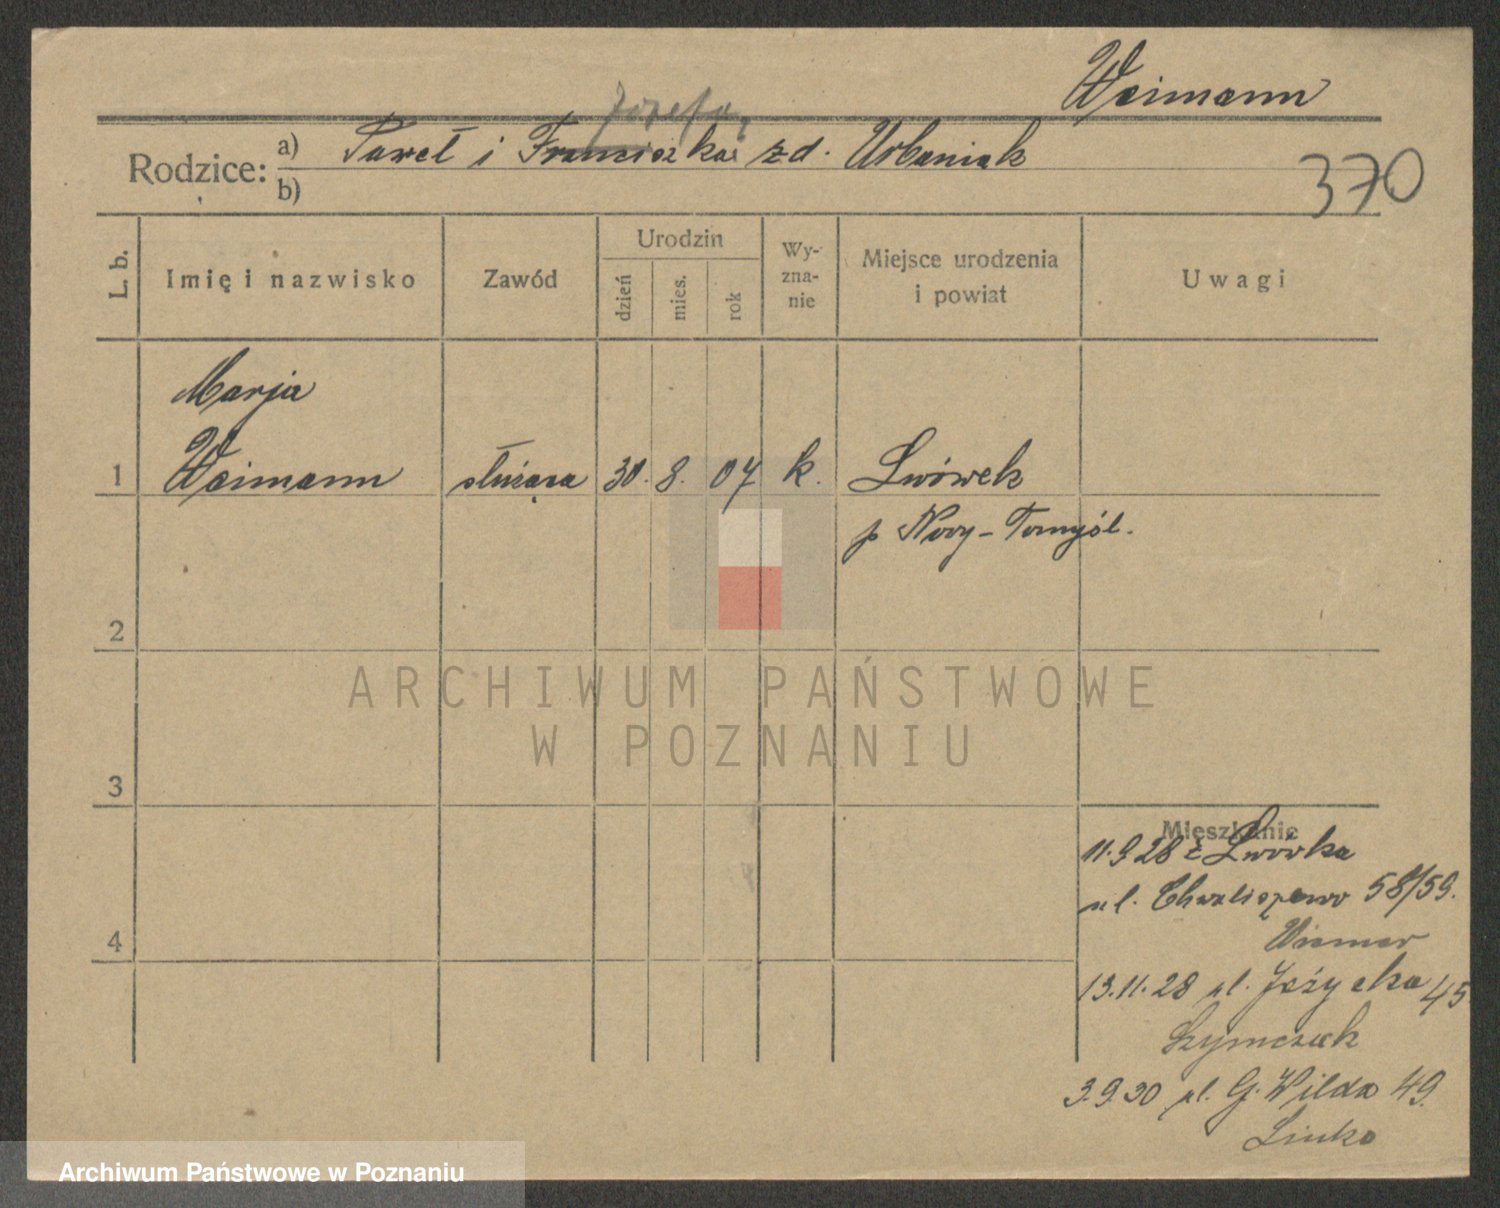 Weimann
Józefa,
Rodzice: a) Paweł i Franciszka zd. Urbaniak
b)
370
L. b.
Imię i nazwisko
Zawód
Urodzin
dzień
mies.
rok
Wy-
zna-
nie
Miejsce urodzenia
i powiat
Uwagi
Marja
1 Weimann służąca 30. 8. 07 k. Lwówek
p Nowy-Tomyśl.
2
ARCHIWUM PAŃSTWOWE
W POZNANIU
3
Mieszkanie
11.9 28 z Lwówka
ul. Chwaliszewo 58/59.
4
13.11.28 ul. Jeżycka 45
Szymczak
3.9.30 ul. G. Wilda 49.
Archiwum Państwowe w Poznaniu